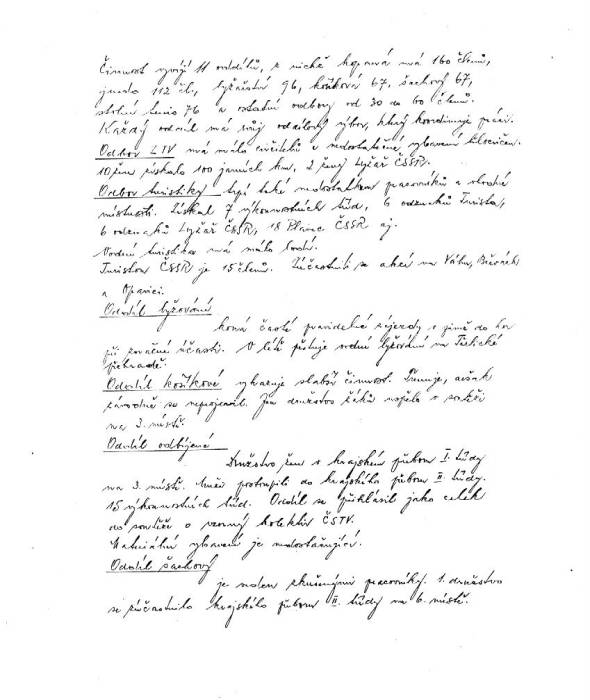 Činnost vyvíjí 11 oddílů, z nichž kopaná má 160 členů,
judo 112 čl., lyžařství 96, košíková 67, šachový 67,
stolní tenis 76 a ostatní odbory od 30 do 60 členů.
Každý oddíl má svůj oddílový výbor, který koordinuje práci.
Odbor ZTV má málo cvičitelů a nedostatečné vybavení tělocvičen.
10 žen získalo 100 jarních km, 2 ženy Lyžař ČSSR.
Odbor turistiky trpí také nedostatkem pracovníků a vhodné
místnosti. Získal 7 výkonnostních tříd, 6 odznaků Turista,
6 odznaků Lyžař ČSSR, 18 Plavec ČSSR aj.
Vodní turistika má málo lodí.
Turistou ČSSR je 15 členů. Zúčastnili se akcí na Váhu,
a Opavici.
Oddíl lyžování
koná časté pravidelné zájezdy v zimě do hor
při značné účasti. V létě pěstuje vodní lyžování na Těrlické
přehradě.
Oddíl košíkové vykazuje slabší činnost. Trénuje, avšak
závodně se neprojevil. Jen družstvo žáků v soutěži
na 3. místě.
Oddíl odbíjené
Družstvo žen v krajském přeboru I. třídy
na 3. místě. Muži postoupili do krajského přeboru II. třídy.
15 výkonnostních tříd. Oddíl se přihlásil jako celek
do soutěže o vzorný kolektiv ČSTV.
Materiální vybavení je nedostačující.
Oddíl šachový
je veden zkušenými pracovníky. 1. družstvo
se zúčastnilo krajského přeboru II. třídy na 6. místě.